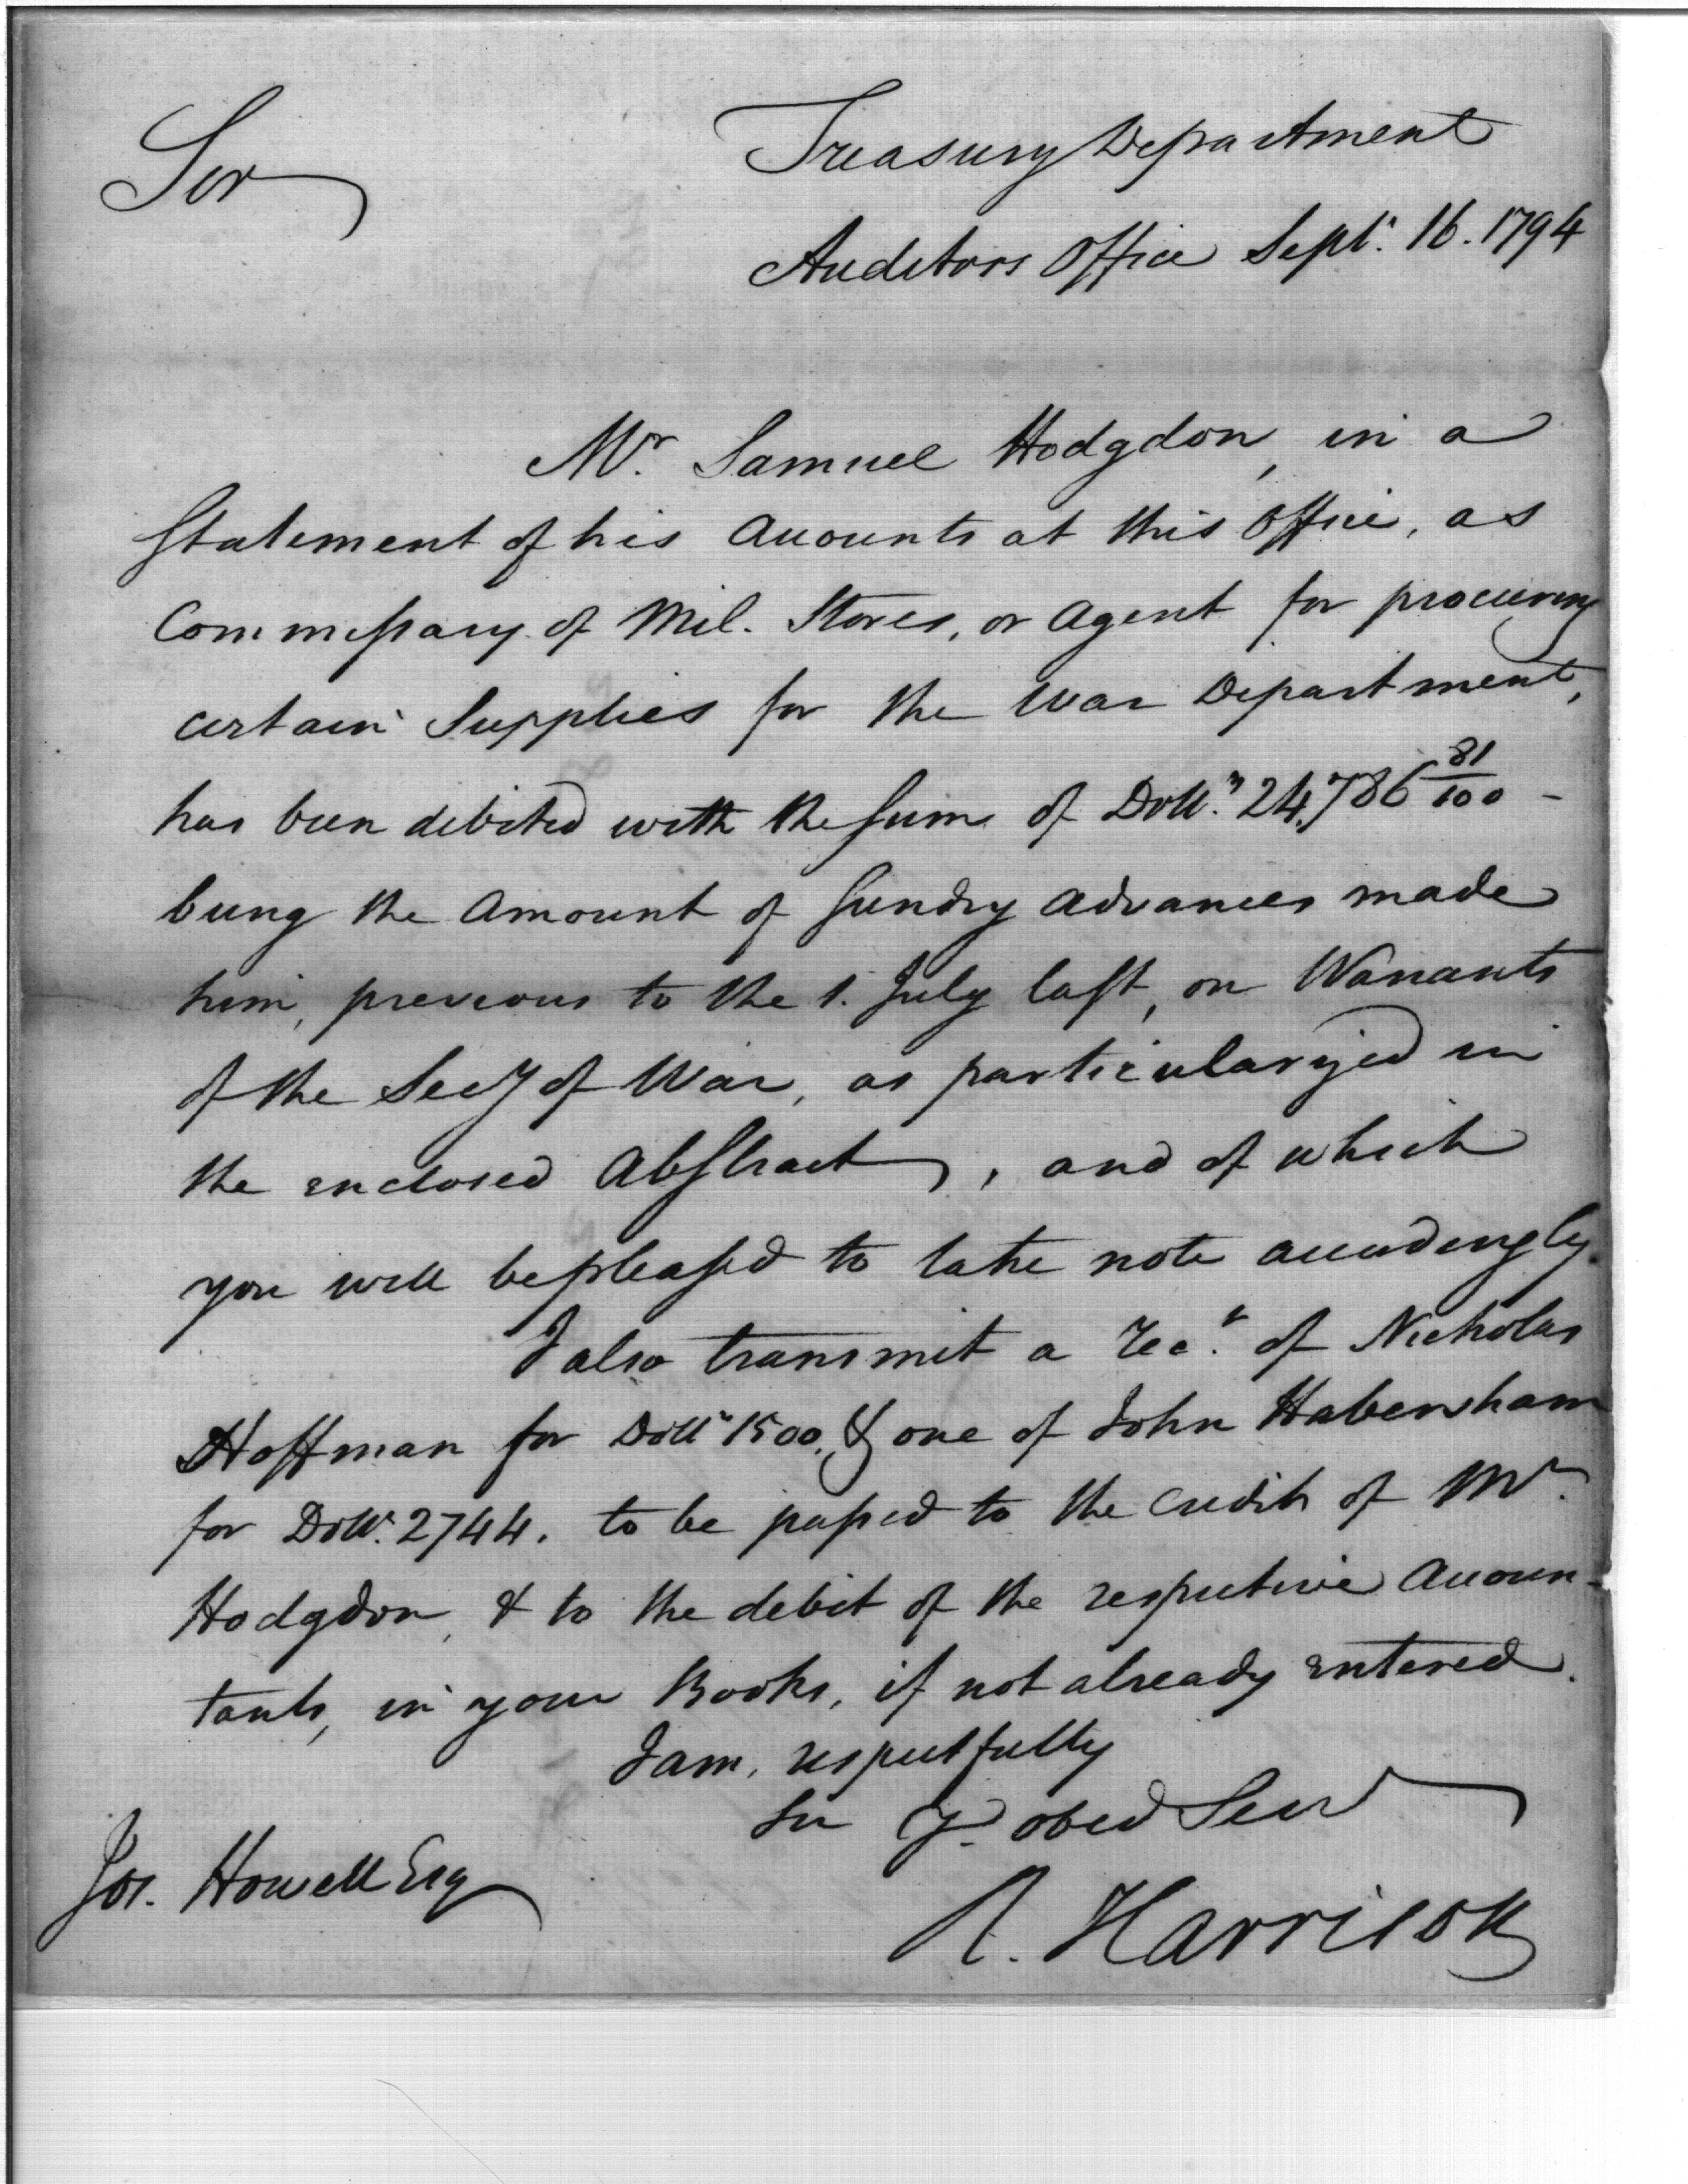 Sir
Treasury Department
Auditors Office Sept.r 16. 1794
Mr. Samuel Hodgdon, in a
Statement of his Accounts at this Office, as
Commissary of Mil. Stores, or Agent for procuring
certain Supplies for the War Department,
has been debited with the sum of Doll.s 24,786 81/100 -
being the Amount of sundry advances made
him, previous to the 1. July last, on Warrants
of the Secy of War, as particularized in
the enclosed Abstract, and of which
you will be pleased to take note accordingly.
I also transmit a rec.t of Nicholas
Hoffman for Doll.s 1500. & one of John Habersham
for Doll.s 2744. to be passed to the Credit of Mr.
Hodgdon, & to the debit of the respective Accoun-
tants, in your Books, if not already entered.
I am, respectfully
Sir Y.r obed Serv
Jos. Howell Esq
R. Harrison